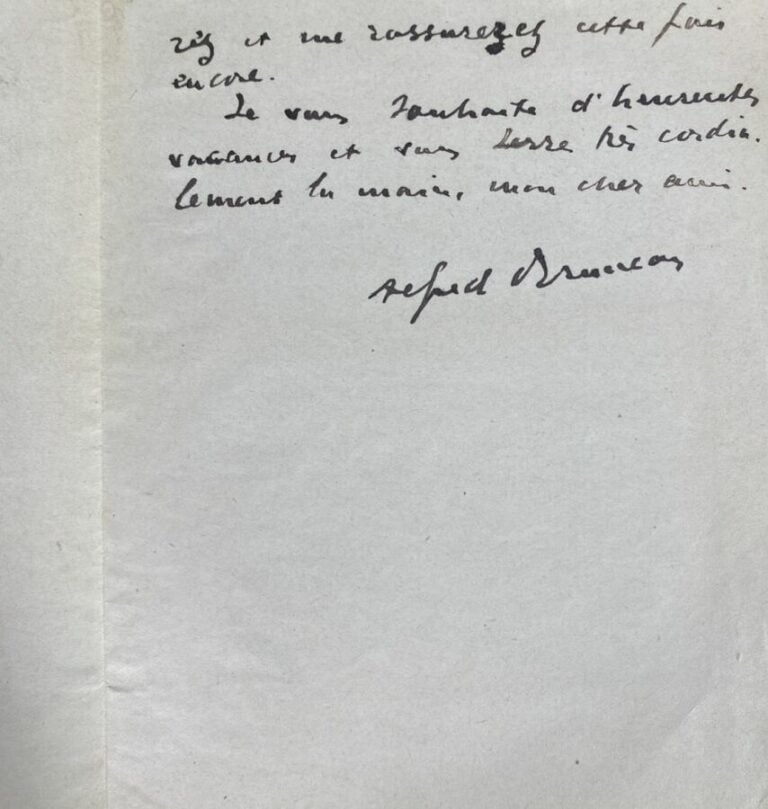 rez et me rassurerez cette fois
encore.
Je vous souhaite d'heureuses
vacances et vous serre très cordia-
lement la main, mon cher ami.
Alfred Bruneau